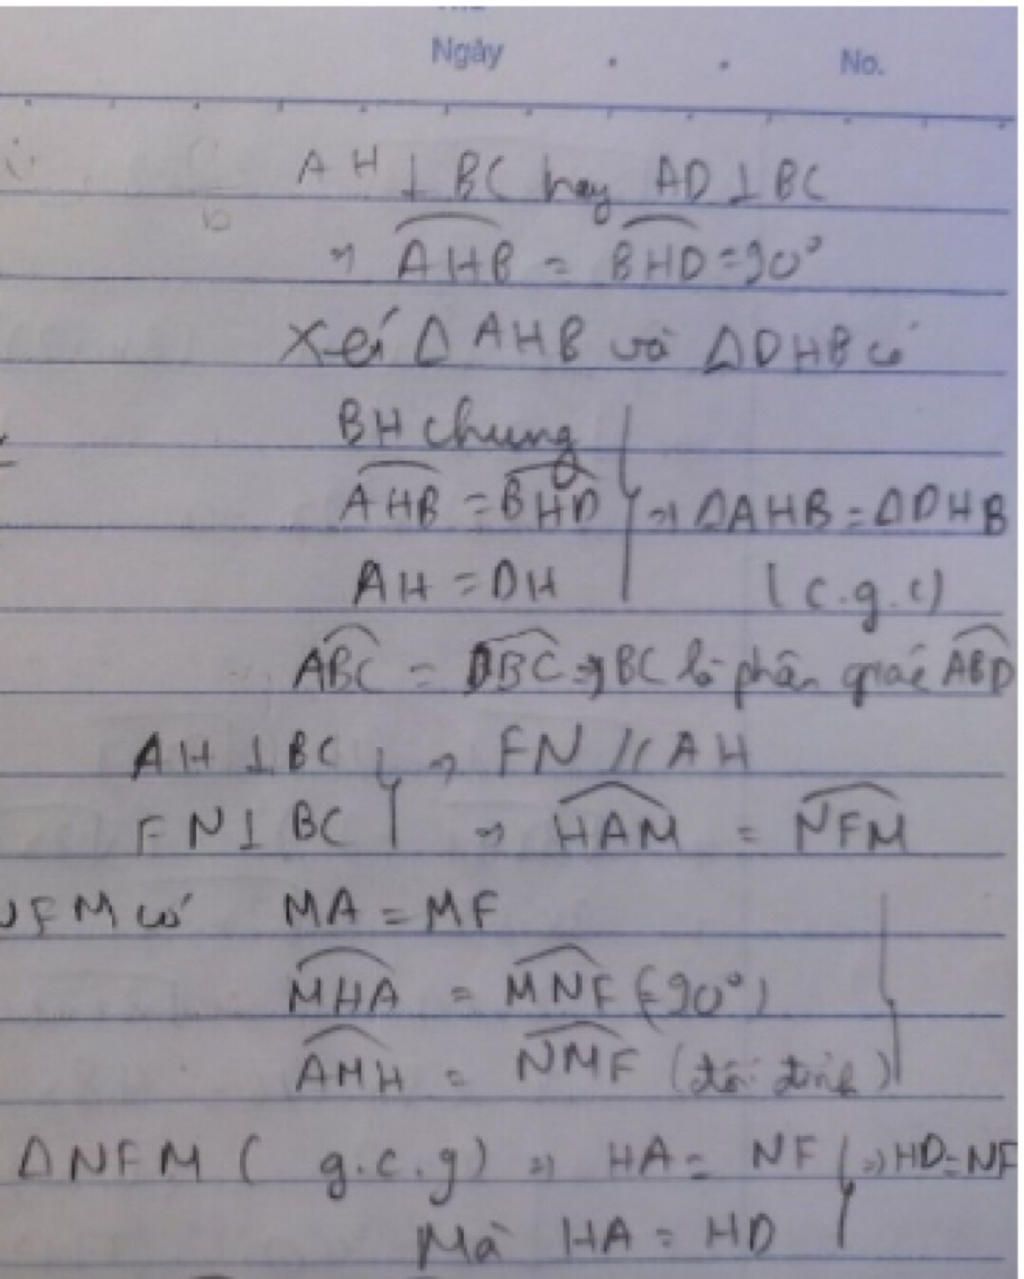 Ngày . . No.
AH ⊥ BC hay AD ⊥ BC
=> \widehat{AHB} = \widehat{BHD} = 90°
Xét Δ AHB và ΔDHB có
BH chung
\widehat{AHB} = \widehat{BHD} } => ΔAHB = ΔDHB
AH = DH (c.g.c)
\widehat{ABC} = \widehat{DBC} => BC là phân giác \widehat{ABD}
AH ⊥ BC } => FN // AH
FN ⊥ BC => \widehat{HAM} = \widehat{NFM}
NFM có MA = MF
\widehat{MHA} = \widehat{MNF} (=90°)
\widehat{AMH} = \widehat{NMF} (đối đỉnh)
ΔNFM (g.c.g) => HA = NF } => HD = NF
Mà HA = HD